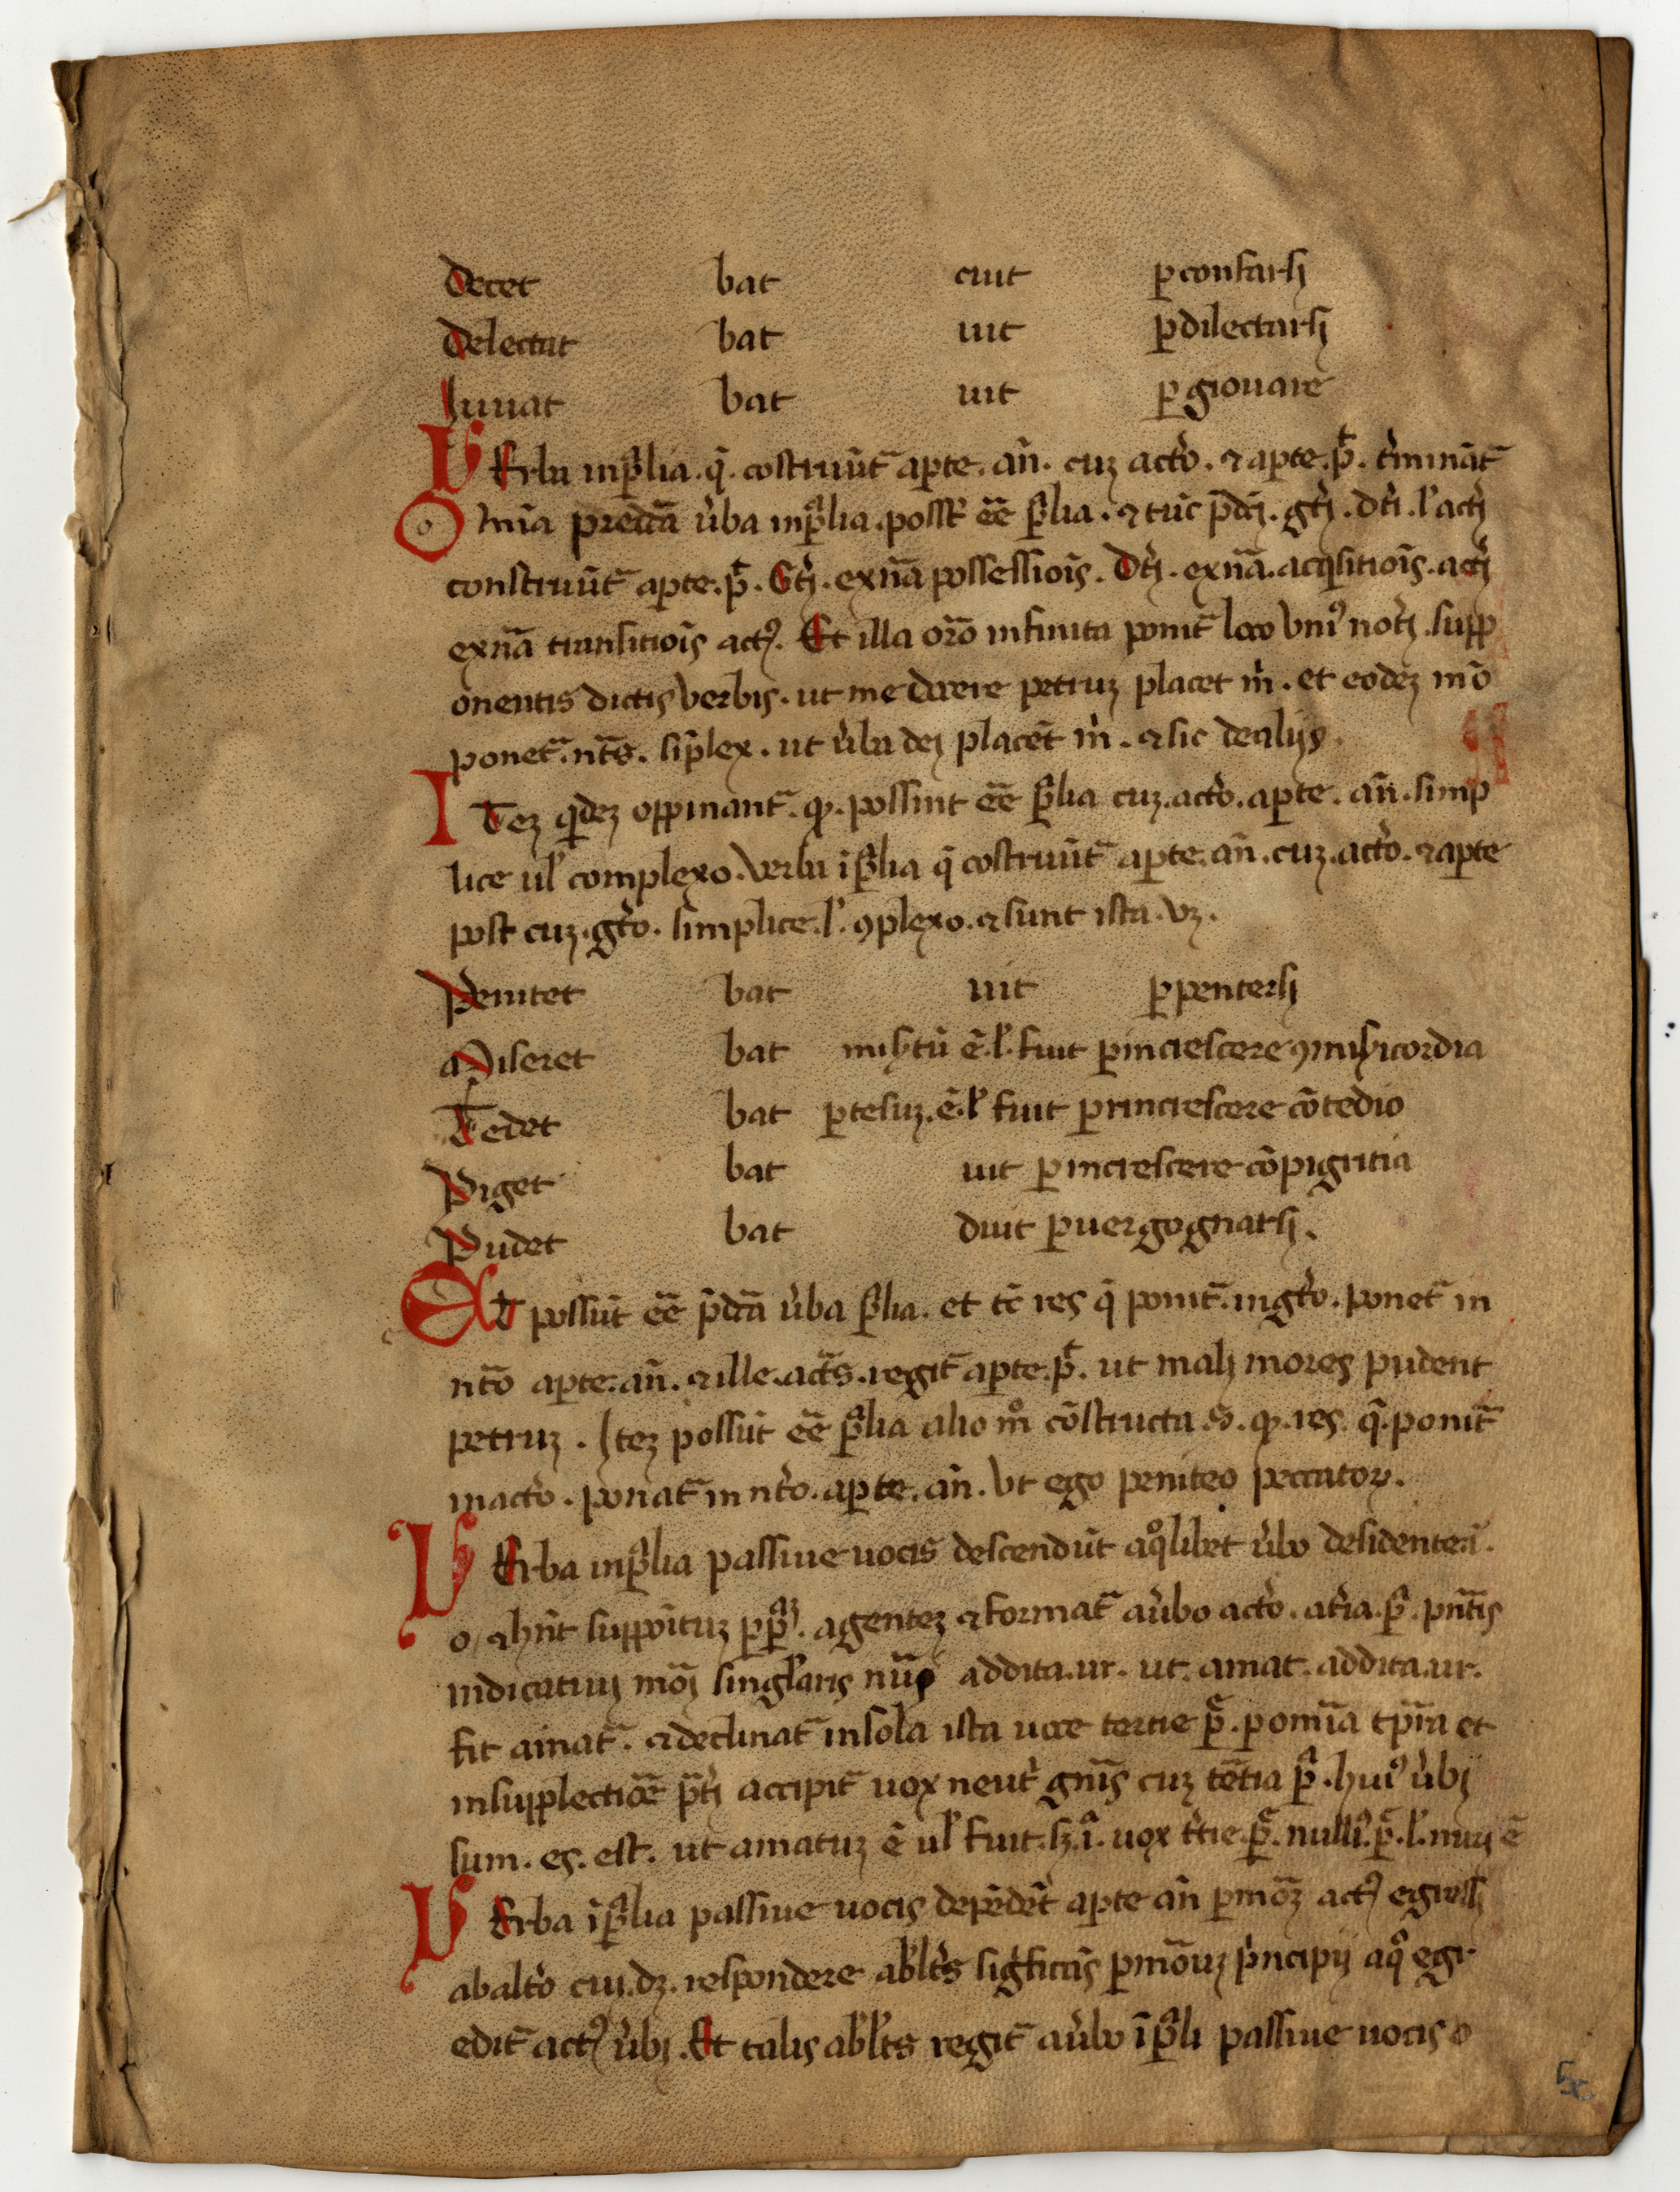 Decet bat cuit ꝑ confarsi
Delectat bat uit ꝑ dilectarsi
Iuuat bat uit ꝑ giouare
VErba inꝑlia . q̄ . costruūt᷑ aꝑte . an̄ . cuz acto . ⁊ aꝑte . p̄ . t̓minãt᷑
Omīa predc̄a v̓ba inꝑlia . poſſt̄ eē ꝑlia . ⁊ tūc p̄dc̄j . gtj̄ . dtī . l̓ actj̄
construūt᷑ aꝑte . p̄ . Gtj̄ . ex nā possessiois̄ . Dtj̄ . ex nā . acq̇sitiois̄ . actj̄
ex nā transitiois̄ actꝰ . Et illa oro̅ infinita ponit᷑ loco vniꝰ notj̄ . supp
onentis dictis verbis . ut me docere petruz placet m̓ . et eodez mo̅
ponet᷑ . nt̄s . siplex̄ . ut v̓ba dej placēt m̓ . ⁊ sic de alijs .
ITez q̇dez oppinant᷑ . ꝙ . possint eē ꝑlia cuz . acto̅ . aꝑte . an̄ . simp
lice ul̓ complexo . verba iꝑlia q̄ costruūt᷑ aꝑte . an̄ . cuz . acto̅ . ⁊ aꝑte
post cuz . gto̅ . simplice . l̓ . ꝯplexo . ⁊ sunt ista . vz .
Penitet bat uit ꝑ pentersi
Miseret bat mis̓tū ē . l̓ . fuit ꝑ increscere ꝯ mis̓icordia
Tedet bat ꝑtesuz . ē . l̓ fuit ꝑ rincrescere cō tedio
Piget bat uit ꝑ increscere cō pigritia
Pudet bat duit ꝑ uergognarsi .
ET possūt eē p̄dc̄a v̓ba ꝑlia . et tc̄ res q̄ ponit᷑ . in gto̅ . ponet᷑ in
nto̅ aꝑte . an̄ . ⁊ ille . act̄s . regit᷑ aꝑte . p̄ . ut malj mores pudent
petruz . Itez possūt eē ꝑlia alio mo̊ cōstructa . s̄ . ꝙ . res . q̄ . ponit᷑
in acto̅ . ponat᷑ in nto̅ . aꝑte . an̄ . Vt ego peniteo peccatoꝝ .
VErba inꝑlia passiue uocis descendūt a q̊libet v̓bo desidente . ī .
o / ⁊ hn̄t suppoītuz ꝑ . agentez ⁊ format᷑ a v̓bo acto̅ . a t̓ia . ꝑ . pn̄tis
indicatiuj moj̄ singl̓aris nūi addita . ur . ut . amat . addita . ur .
fit amat᷑ . ⁊ declinat᷑ in sola ista uoce tertie ꝑ . ꝑ omīa tꝑra et
in supplectiōe p̄tj accipit᷑ uox neut̓ gn̄is cuz t̄etia ꝑ . huiꝰ v̓bj
sum . es . est . ut amatuz ē ul̓ fuit . sz . ī . uox t̓tie . ꝑ . nulliꝰ . ꝑ . l̓ . nūij ē
VErba iꝑlia passiue uocis depēdēt aꝑte an̄ ꝑ moz̄ actꝰ egressj
ab alto̅ cuj . dz . respondere abl̓ts sig̓ficās ꝑ moduz p̓ncipij a q̊ egr
edit᷑ actꝰ v̓bj . Et talis abl̓ts regit᷑ a v̓bo iꝑli passiue uocis